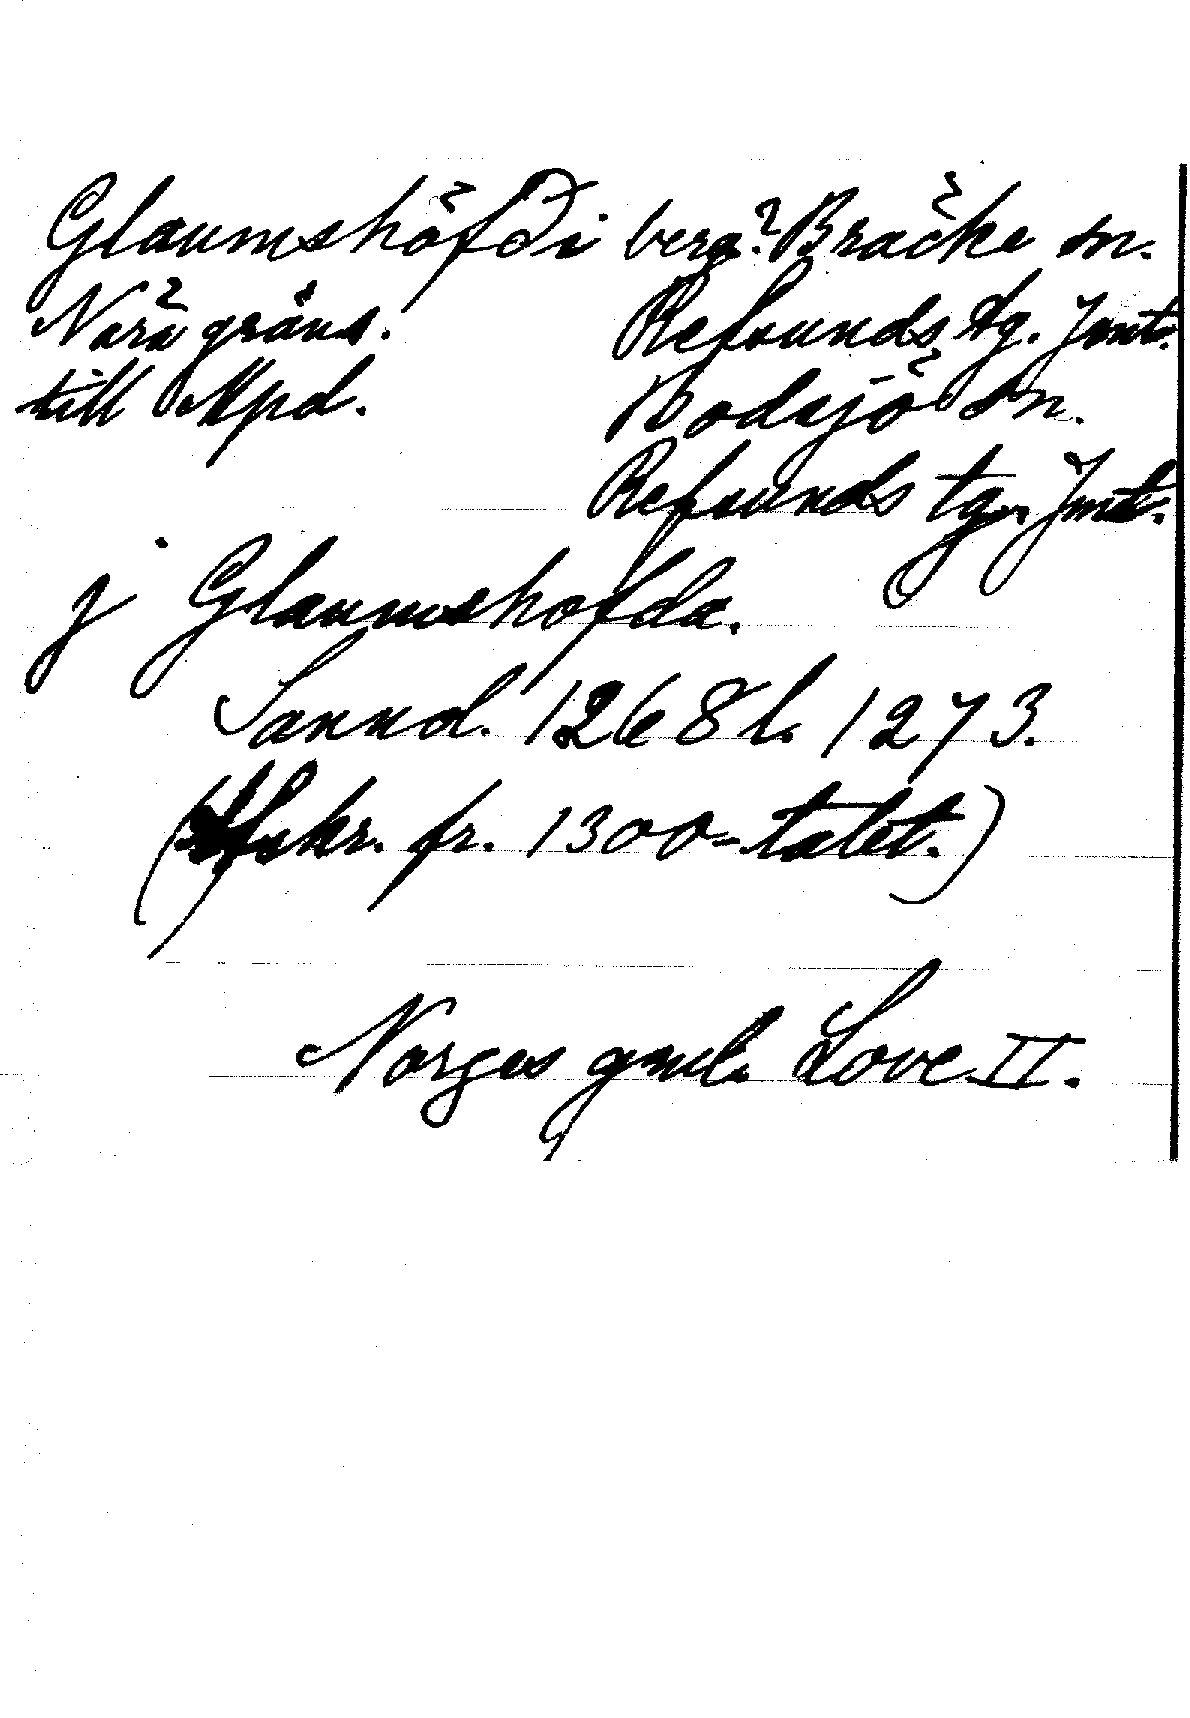 Glaumshöfði berg? Bräcke sn.
Nära gräns. Refsunds tg. Jmt.
till Mpd. Bodsjö sn.
Refsunds tg. Jmt.
j Glaumshofda.
Sannol. 1268 l. 1273.
(Afskr. fr. 1300-talet.)
Norges gml. Love II.